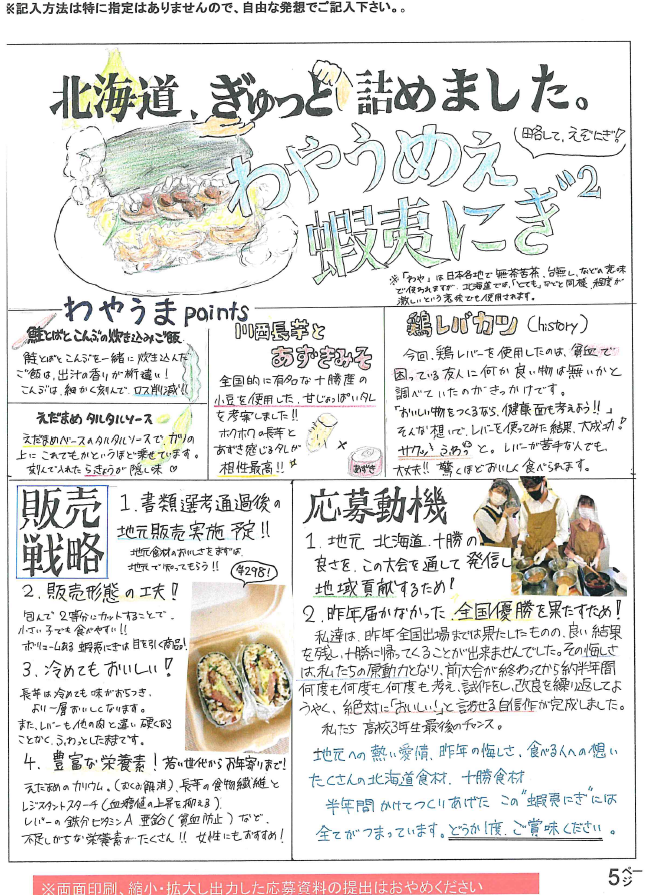 ※記入方法は特に指定はありませんので、自由な発想でご記入下さい。。
北海道、ぎゅっと詰めました。
わやうめえ
蝦夷にぎ²
略して、えぞにぎ!
※「わや」は日本各地で無茶苦茶、台無し、などの意味
で使われますが、北海道では、「とても」などと同様、程度が
激しいという意味でも使用されます。
わやうまpoints
鮭とばとこんぶの炊き込みご飯
鮭とばとこんぶを一緒に炊き込んだ
ご飯は、出汁の香りが段違い!
こんぶは、細かく刻んで、ロス削減!!
えだまめタルタルソース
えだまめベースのタルタルソースで、カツの
上にこれでもかというほど乗せています。
刻んで入れたらっきょうが隠し味♡
川西長芋と
あずきみそ
全国的に有名な十勝産の
小豆を使用した、甘じょっぱいタレ
を考案しました!!
ホクホクの長芋と
あずき感じるタレが
相性最高!!
あずき
鶏レバカツ(history)
今回、鶏レバーを使用したのは、貧血で
困っている友人に何か良い物は無いかと
調べていたのがきっかけです。
「おいしい物をつくるなら、健康面も考えよう!!」
そんな想いで、レバーを使ってみた結果、大成功!
サクッ、ふわっと。レバーが苦手な人でも、
大丈夫!!驚くほどおいしく食べられます。
販売
戦略
1.書類選考通過後の
地元販売実施予定!!
地元食材のおいしさをまずは、
地元で知ってもらう!!
2.販売形態の工夫!
包んで2等分にカットすることで、
小さい子でも食べやすい!!
ボリュームある蝦夷にぎは目を引く商品!
¥298!
3.冷めてもおいしい!
長芋は冷めても味がおちつき、
より一層おいしくなります。
また、レバーも他の肉と違い硬くなる
ことなく、ふわっとした食材です。
4.豊富な栄養素!若い世代からお年寄りまで!
えだまめのカリウム。(むくみ解消)、長芋の食物繊維と
レジスタントスターチ(血糖値の上昇を抑える)、
レバーの鉄分ビタミンA亜鉛(貧血防止)など、
不足しがちな栄養素がたくさん!!女性にもおすすめ!
応募動機
1.地元北海道、十勝の
良さを、この大会を通して発信し
地域貢献するため!
2.昨年届かなかった全国優勝を果たすため!
私達は、昨年全国出場までは果たしたものの、良い結果
を残し、十勝に帰ってくることが出来ませんでした。その悔しさ
は、私たちの原動力となり、前大会が終わってから約半年間
何度も何度も何度も考え、試作をし、改良を繰り返してよ
うやく、絶対に「おいしい!」と言わせる自信作が完成しました。
私たち高校3年生最後のチャンス。
地元への熱い愛情、昨年の悔しさ、食べる人への想い
たくさんの北海道食材、十勝食材
半年間かけてつくりあげたこの“蝦夷にぎ”には
全てがつまっています。どうか1度、ご賞味ください。
5ページ
※両面印刷、縮小・拡大し出力した応募資料の提出はおやめください